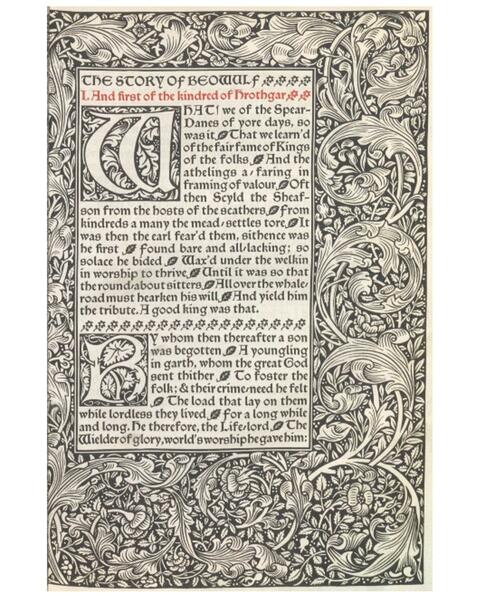 THE STORY OF BEOWULF
I. And first of the kindred of Hrothgar
WHAT! we of the Spear-
Danes of yore days, so
was it That we learn'd
of the fair fame of Kings
of the folks And the
athelings a-faring in
framing of valour. Oft
then Scyld the Sheaf-
son from the hosts of the scathers, From
kindreds a many the mead-settles tore; It
was then the earl fear'd them, sithence was
he first Found bare and all-lacking; so
solace he bided, Wax'd under the welkin
in worship to thrive, Until it was so that
the round-about sitters, All over the whale-
road must hearken his will, And yield him
the tribute. A good king was that.
BY whom then thereafter a son
was begotten, A youngling
in garth, whom the great God
sent thither. To foster the
folk; & their crime-need he felt
The load that lay on them
while lordless they lived, For a long while
and long. He therefore, the Life-lord, The
Wielder of glory, world's worship he gave him: